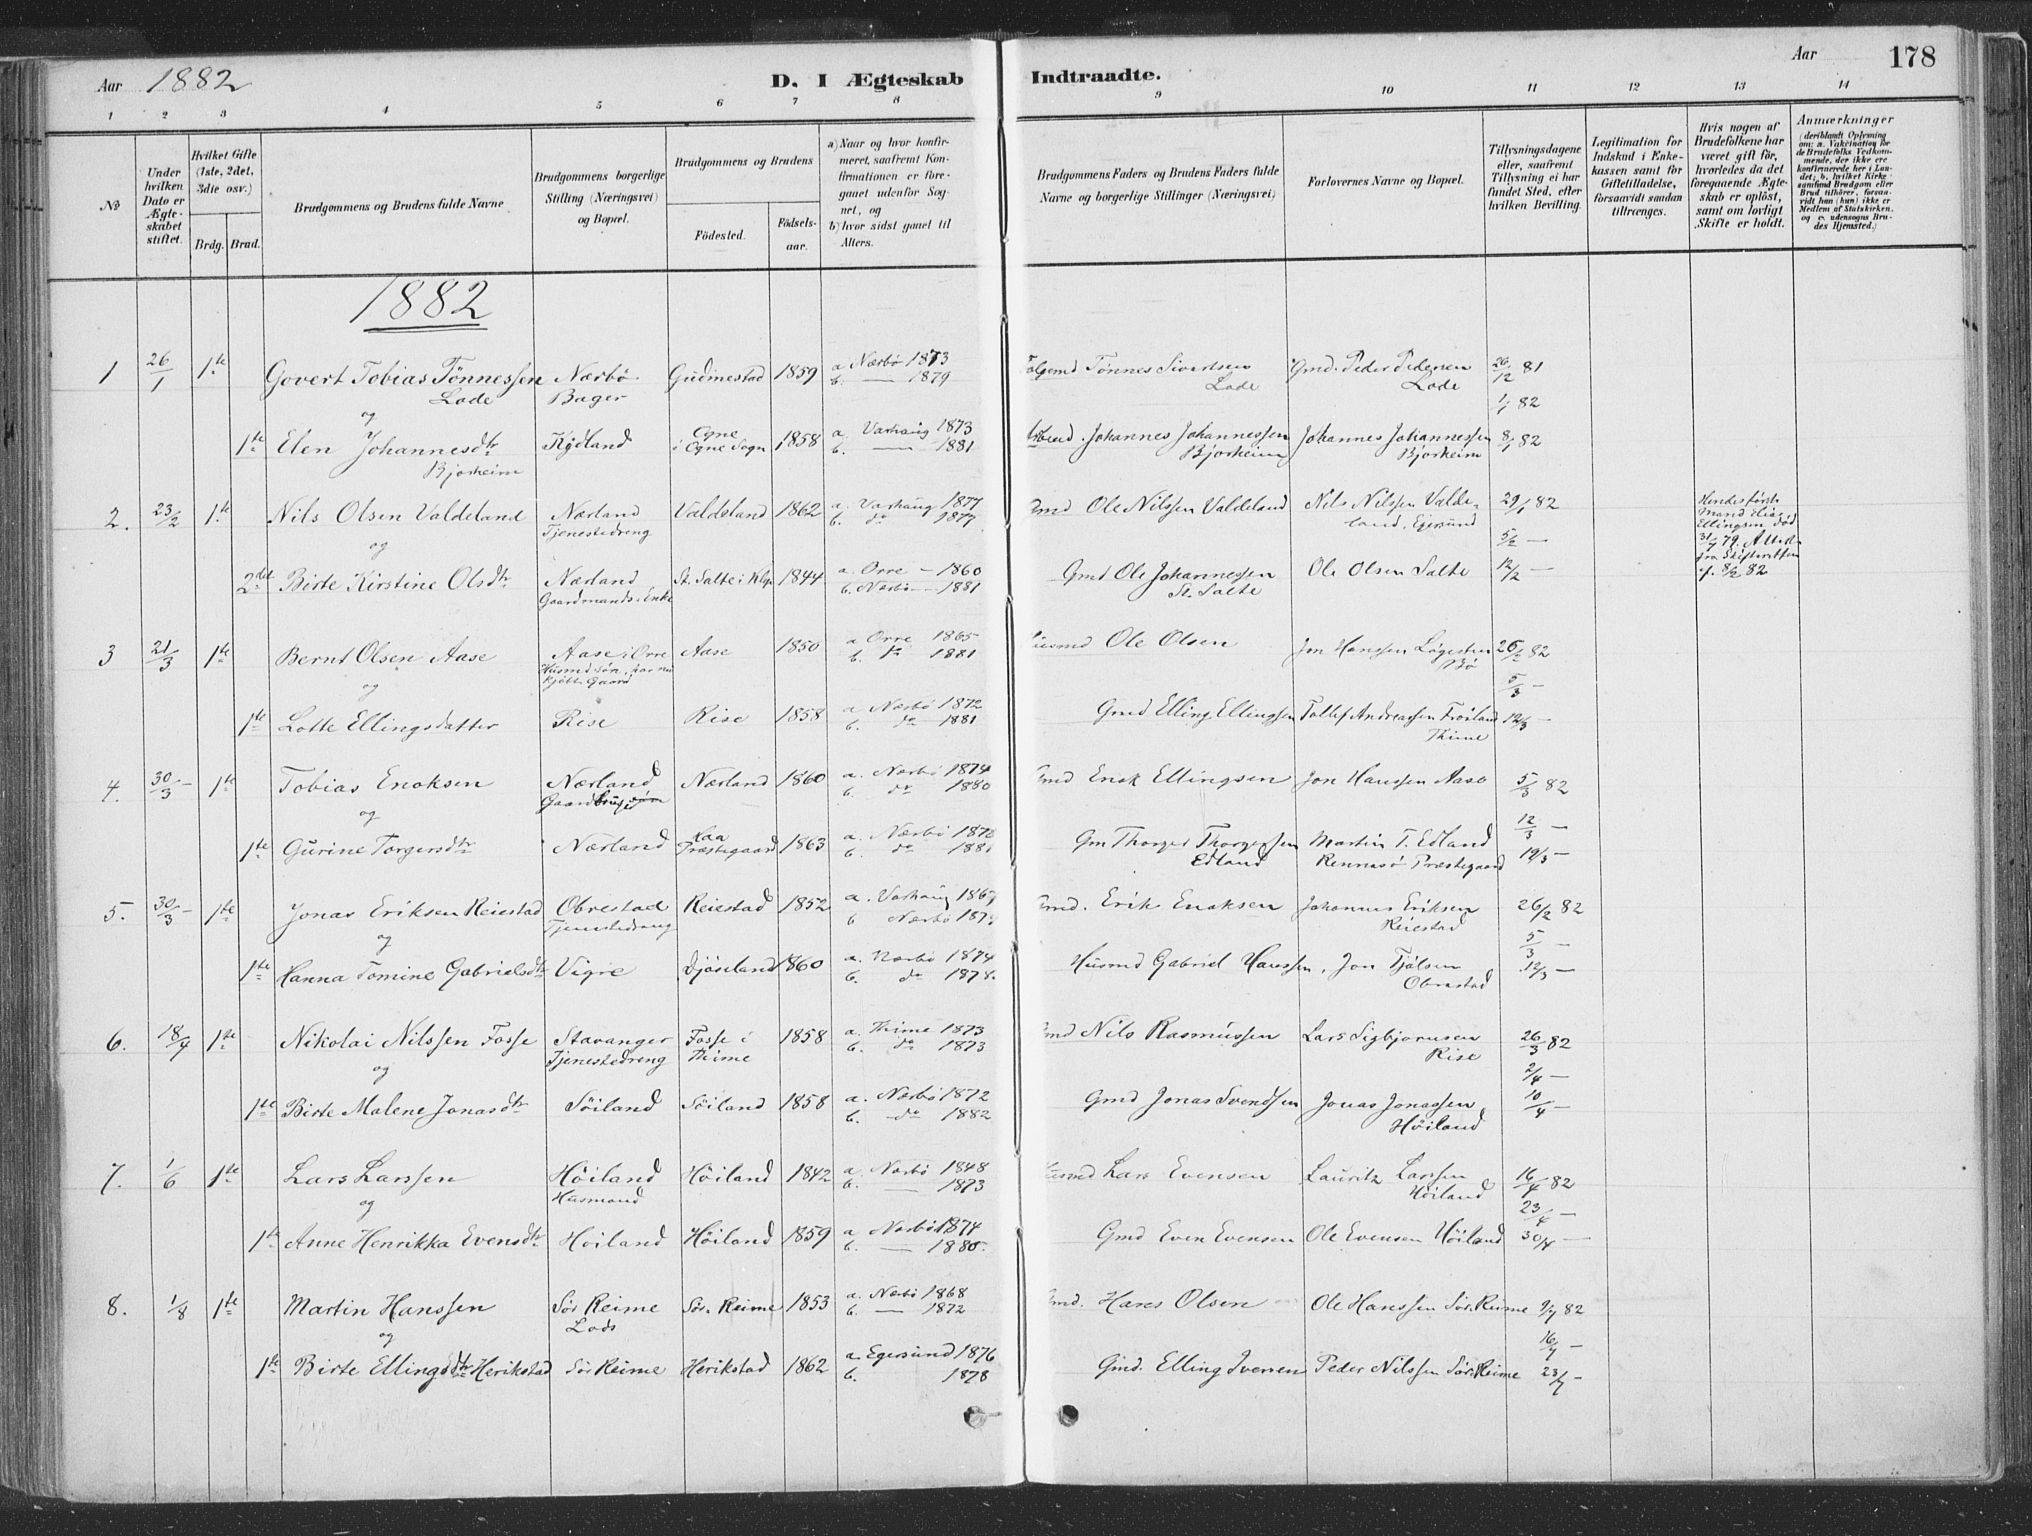 Aar 1882 D. I Ægteskab Indtraadte. Aar 178
1 2 3 4 5 6 7 8 9 10 11 12 13 14
№
Under hvilken Dato er Ægteskabet stiftet.
Hvilket Gifte (1ste, 2det, 3die osv.)
Brdg. Brud.
Brudgommens og Brudens fulde Navne
Brudgommens borgerlige Stilling (Næringsvei) og Bopæl.
Brudgommens og Brudens
Födested. Födsels-aar.
a) Naar og hvor konfirmeret, saafremt Konfirmationen er foregaaet udenfor Sognet, og
b) hvor sidst gaaet til Alters.
Brudgommens Faders og Brudens Faders fulde Navne og borgerlige Stillinger (Næringsvei)
Forlovernes Navne og Bopæl.
Tillysningsdagene eller, saafremt Tillysning ei har fundet Sted, efter hvilken Bevilling.
Legitimation for Indskud i Enkekassen samt for Giftetilladelse, forsaavidt saadan tiltrænges.
Hvis nogen af Brudefolkene har været gift för, hvorledes da det foregaaende Ægteskab er oplöst, samt om lovligt Skifte er holdt.
Anmærkninger (deriblandt Oplysning om: a. Vakcination for de Brudefolks Vedkommende, der ikke ere konfirmerede her i Landet; b. hvilket Kirkesamfund Brudgom eller Brud tilhörer, forsaavidt han (hun) ikke er Medlem af Statskirken, og c. udensogns Brudes Hjemsted.)
1882
1 26/1 1te Govert Tobias Tönnessen Nærbö Gudmestad 1859 a Nærbö 1873 Tönnes Sivertsen Gmd. Peder Pedersen 26/12 81
Lode Bager b. — 1879 Lode Lode
og 1/1 82
1te Elen Johannesdtr Kydland Ogne 1858 a. Varhaug 1873 Johannes Johannessen Johannes Johannessen 8/1 82
Bjorheim i Ogne Sogn b. — 1881 Bjorheim Bjorheim
2. 23/2 1te Nils Olsen Valdeland Nærland Valdeland 1862 a. Varhaug 1877 Gmd Ole Nilssen Valdeland Nils Nilssen Valde- 29/1 82 Hendes förste
Tjenestedreng b. do 1877 land, Egersund Mand Elias
og 5/2 — Ellingsen död
2det Birte Kirstine Olsdtr Nærland St. Salte i Klp 1844 a. Orre — 1860 Gmd Ole Johannessen Ole Olsen Salte 12/2 — 31/7 79. Attest
Gaardmands Enke b. Nærbö — 1881 St. Salte fra Skifteretten
f. 8/2 82
3 21/3 1te Bernt Olsen Aase Aase i Orre Aase 1850 a Orre 1865 Husmd Ole Olsen Jon Hanssen 26/2 82
Husmd Sön, har nu b. 1881 Bö
kjöbt Gaard
og 5/3 —
1te Lotte Ellingsdatter Rise Rise 1858 a Nærbö 1872 Gmd Elling Ellingsen Tollef Andreassen Fröiland 12/3 —
b. do — 1881 Thime
4. 30/3 — 1te Tobias Enoksen Nærland Nærland 1860 a. Nærbö 1874 Gmd Enok Ellingsen Jon Hanssen Aase 5/3 82
b. do 1880
og 12/3 —
1te Gurine Torgersdtr Nærland Haa 1863 a. Nærbö 1878 Gm Thorger Thorgersen Martin T. Edland 19/3 —
Præstegaard b. do 1881 Edland Rennesö Præstegaard
5. 30/3 — 1te Jonas Eriksen Reiestad Obrestad Reiestad 1852 a. Varhaug 1867 Gmd. Erik Enoksen Johannes Eriksen 26/2 82
Tjenestedreng b Nærbö Reiestad
og 5/3 —
1te Hanna Tomine Gabrielsdtr Vigre Djöseland 1860 a. Nærbö 1874 Husmd Gabriel Hanssen, Jon Tjölsen 12/3 —
b. do 1878. Obrestad
6. 18/4 1te Nikolai Nilssen Fosse Stavanger Fosse i 1858 a. Thime 1873 Gmd Nils Rasmussen Lars Sigbjörnsen 26/3 82
Tjenestedreng Thime b. do 1873 Rise
og 2/4 —
1te Birte Malene Jonasdtr Söiland Söiland 1858 a. Nærbö 1872 Gmd Jonas Svendsen Jonas Jonassen 10/4 —
b. do 1882 Höiland
7. 1/6 1te Lars Larssen Höiland Höiland 1842 a. Nærbö 1848 Husmd Lars Evensen Lauritz Larssen 16/4 82
Husmand b. — 1873 Höiland
og 23/4 —
1te Anne Henrikka Evensdtr Höiland Höiland 1859 a Nærbö 1874 Gmd Even Evensen Ole Evensen Höiland 30/4 —
b. — 1880.
8. 1/8 1te Martin Hanssen Sör Reime Sör. Reime 1853 a. Nærbö 1868 Gmd. Hans Olsen Ole Hanssen Sör. Reime 9/7 82
Lods b. — 1872
og 16/7 —
1te Birte Ellingsdtr Herikstad Sör Reime Herikstad 1862 a. Egersund 1876 Gmd. Elling Iversen Peder Nilssen Sör. Reime 23/7 —
b. 1878